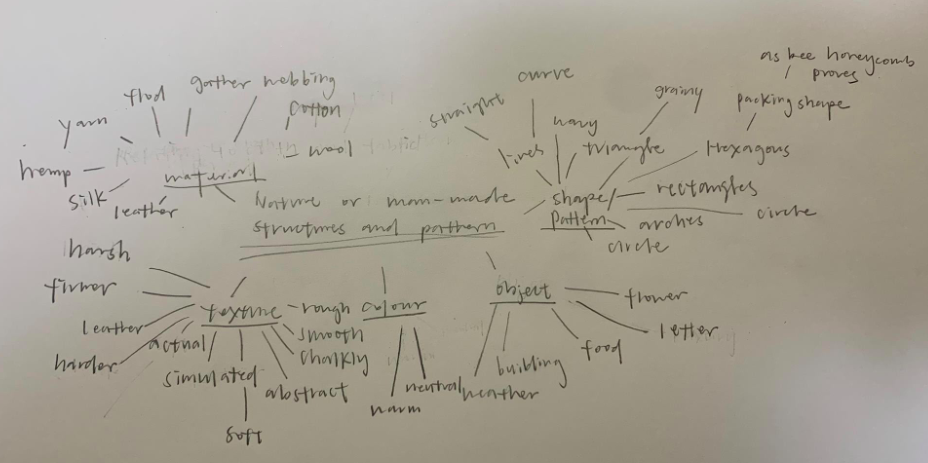 as bee honeycomb
proves
packing shape
Hexagons
grainy
curve
straight
wavy
lines
triangle
shape/
pattern
rectangles
arches
circle
circle
gather
webbing
cotton
wool
yarn
hemp
silk
leather
material
Nature or man-made
structures and pattern
harsh
leather
harder
texture
actual
simulated
soft
abstract
rough
smooth
chalkly
colour
warm
neutral
object
flower
letter
food
building